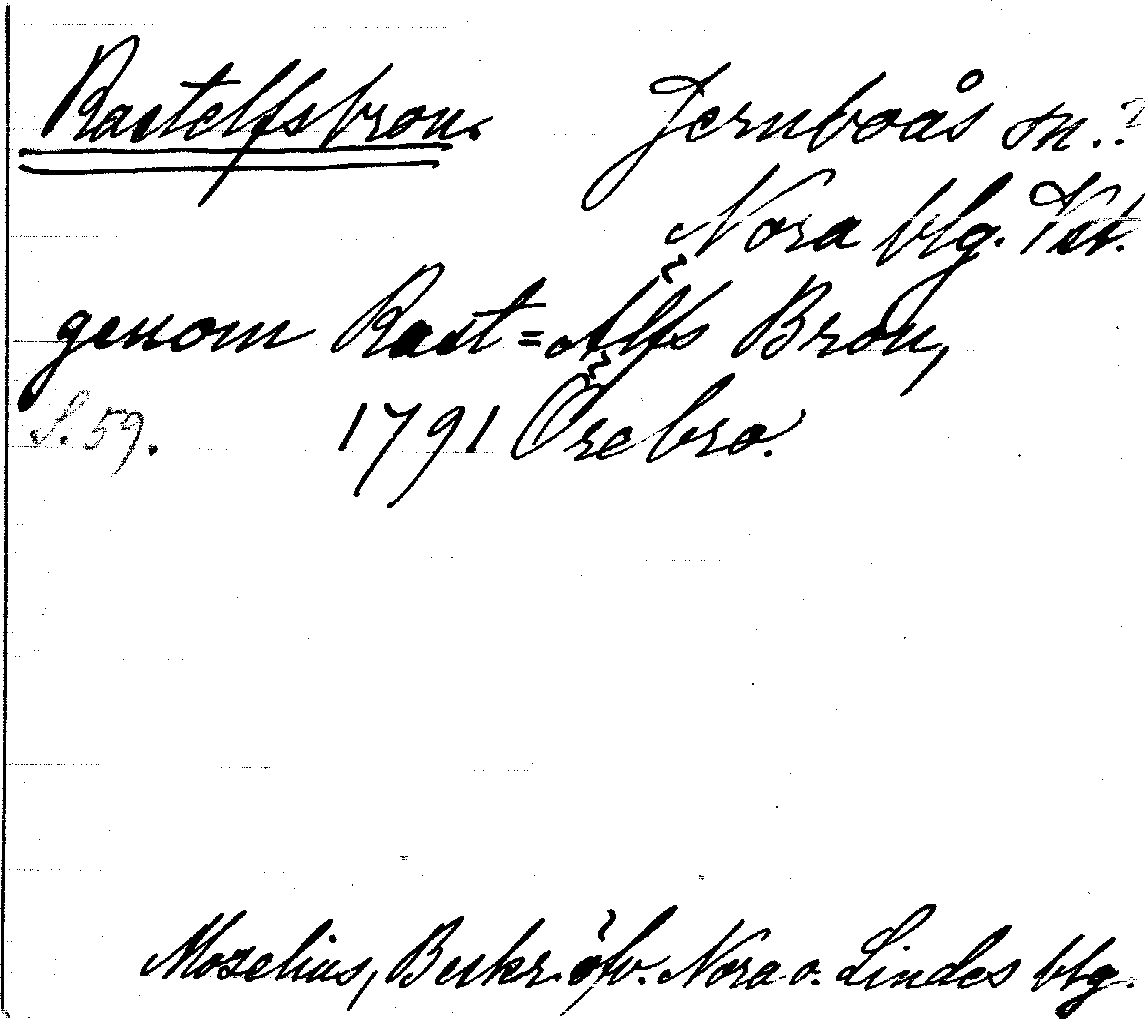 Rastelfsbron. Jernboås sn.?
Nora blg. Vst.
genom Rast=Älfs Bron,
S. 59. 1791 Örebro.
Mozelius, Beskr. öfv. Nora o. Lindes blg.